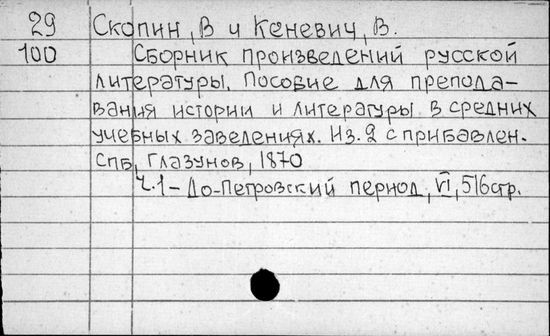 29 Скопин, В и Кеневич, В.
100 Сборник произведений русской
литературы. Пособие для препода-
вания истории и литературы в средних
учебных заведениях. Из. 2 с прибавлен.
Спб, Глазунов, 1870
Ч.1 - До-Петровский период, VI, 516стр.